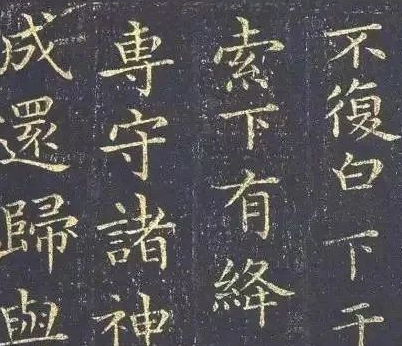 不復白下于
索下有絳
専守諸神
成還歸與